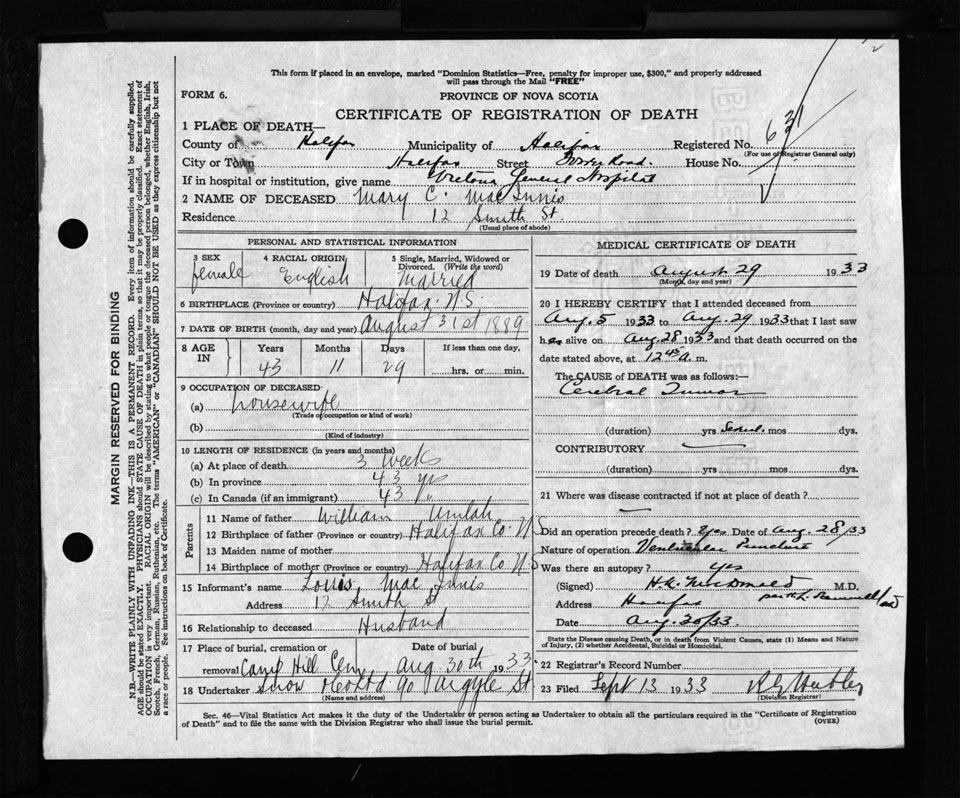 2
This form if placed in an envelope, marked "Dominion Statistics—Free, penalty for improper use, $300," and properly addressed
will pass through the Mail "FREE"
FORM 6.
PROVINCE OF NOVA SCOTIA
CERTIFICATE OF REGISTRATION OF DEATH
1 PLACE OF DEATH—
County of Halifax Municipality of Halifax Registered No. 631
(For use of Registrar General only)
City or Town Halifax Street Tower Road. House No.
If in hospital or institution, give name Victoria General Hospital
2 NAME OF DECEASED Mary C. MacInnis
Residence 12 Smith St.
(Usual place of abode)
PERSONAL AND STATISTICAL INFORMATION
3 SEX 4 RACIAL ORIGIN 5 Single, Married, Widowed or
Divorced. (Write the word)
female English Married
6 BIRTHPLACE (Province or country) Halifax. N.S.
7 DATE OF BIRTH (month, day and year) August 31st 1889
8 AGE IN Years Months Days If less than one day,
43 11 29 hrs. or min.
9 OCCUPATION OF DECEASED
(a) housewife
(Trade, occupation or kind of work)
(b)
(Kind of industry)
10 LENGTH OF RESIDENCE (in years and months)
(a) At place of death 3 weeks
(b) In province 43 yrs
(c) In Canada (if an immigrant) 43 "
Parents
11 Name of father William Umlah
12 Birthplace of father (Province or country) Halifax Co. N.S
13 Maiden name of mother
14 Birthplace of mother (Province or country) Halifax Co N.S
15 Informant's name Louis MacInnis
Address 12 Smith St
16 Relationship to deceased Husband
17 Place of burial, cremation or Date of burial
removal Camp Hill Cem Aug 30th 1933
18 Undertaker Snow & Co Ltd 90 Argyle St
(Name and address)
MEDICAL CERTIFICATE OF DEATH
19 Date of death August 29 1933
(Month, day and year)
20 I HEREBY CERTIFY that I attended deceased from
Aug. 5 1933 to Aug. 29 1933 that I last saw
her alive on Aug. 28 1933 and that death occurred on the
date stated above, at 12 45 A. m.
The CAUSE of DEATH was as follows:—
Cerebral Tumor
(duration) yrs Several mos dys.
CONTRIBUTORY
(duration) yrs mos dys.
21 Where was disease contracted if not at place of death ?
Did an operation precede death ? Yes Date of Aug. 28/33
Nature of operation Ventricular Puncture
Was there an autopsy ? Yes
(Signed) H.K. McDonald M.D.
Address Halifax
Date Aug. 30/33.
State the Disease causing Death, or in death from Violent Causes, state (1) Means and Nature
of Injury, (2) whether Accidental, Suicidal or Homicidal.
22 Registrar's Record Number
23 Filed Sept 13 1933
(Division Registrar)
Sec. 46—Vital Statistics Act makes it the duty of the Undertaker or person acting as Undertaker to obtain all the particulars required in the "Certificate of Registration
of Death" and to file the same with the Division Registrar who shall issue the burial permit. (OVER)
MARGIN RESERVED FOR BINDING
N.B.—WRITE PLAINLY WITH UNFADING INK—THIS IS A PERMANENT RECORD. Every item of information should be carefully supplied.
AGE should be stated EXACTLY. PHYSICIANS should STATE CAUSE OF DEATH in plain terms, so that it may be properly classified. Exact statement of
OCCUPATION is very important. RACIAL ORIGIN will be described by stating to what people or tongue the deceased person belonged, whether English, Irish,
Scotch, French, German, Russian, Ruthenian, etc. The terms "AMERICAN" or "CANADIAN" SHOULD NOT BE USED as they express citizenship but not
a race or people. See instructions on back of Certificate.